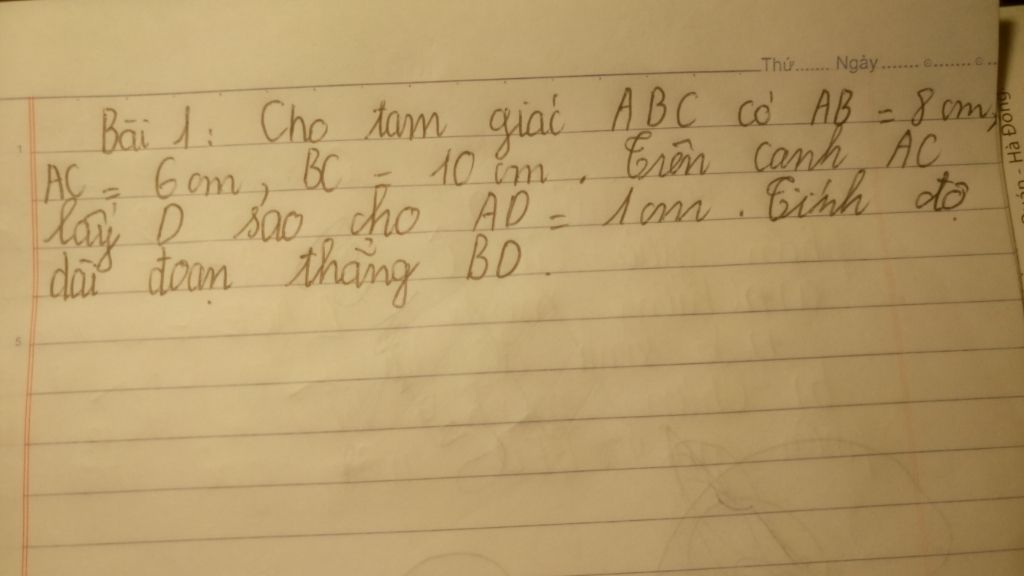 Thứ....... Ngày.......
Bài 1: Cho tam giác ABC có AB = 8 cm,
AC = 6 cm, BC = 10 cm. Trên cạnh AC
lấy D sao cho AD = 1 cm. Tính độ
dài đoạn thẳng BD.
1
5
Hà Đông